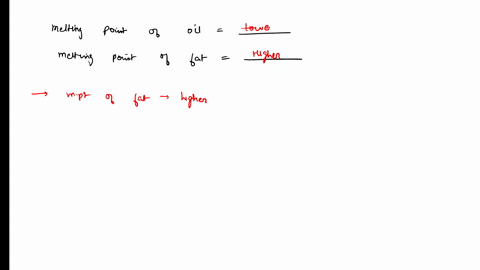 melting point of oil = Lowe
melting point of fat = Higher
→ m.pt of fat → higher